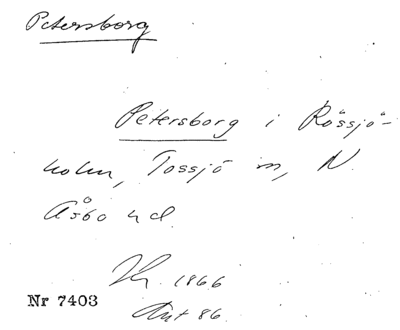 Petersborg
Petersborg i Rössjö-
holm, Tossjö sn, N.
Åsbo hd.
1866
Nr 7403
86.